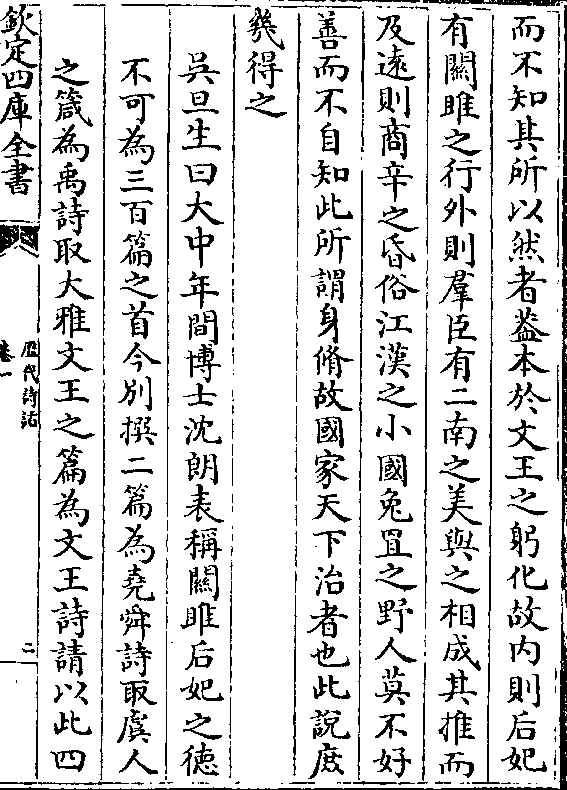 而不知其所以然者蓋本於文王之躬化故内則后妃
有關雎之行外則羣臣有二南之美與之相成其推而
及逺則商辛之昏俗江漢之小國兔罝之野人莫不好
善而不自知此所謂身脩故國家天下治者也此說庶
幾得之
吳旦生曰大中年間博士沈朗表稱關雎后妃之德
不可為三百篇之首今别撰二篇為堯舜詩取虞人
之箴為禹詩取大雅文王之篇為文王詩請以此四
欽定四庫全書
歴代詩話
卷一
二